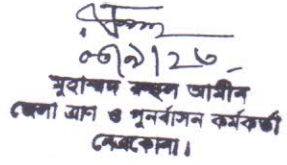 ০৫/৯/২৩
মুহাম্মদ রুহুল আমীন
জেলা ত্রাণ ও পুনর্বাসন কর্মকর্তা
নেত্রকোনা।